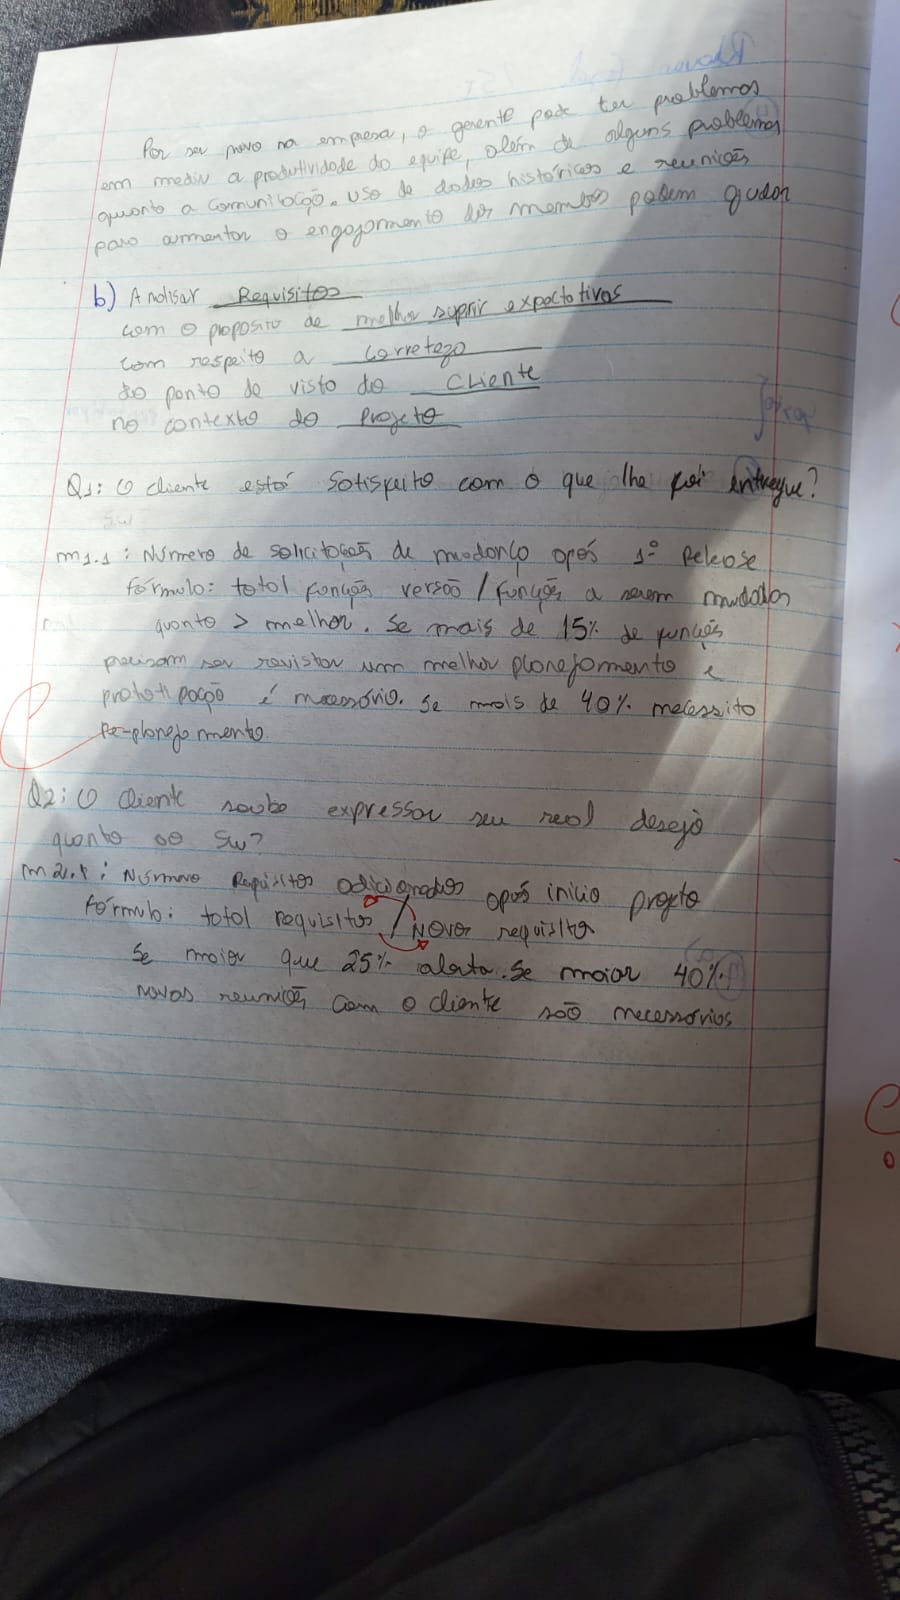 Por ser novo na empresa, o gerente pode ter problemas
em medir a produtividade da equipe, além de alguns problemas
quanto a comunicação. Uso de dados históricos e reuniões
para aumentar o engajamento dos membros podem ajudar
b) Analisar Requisitos
com o proposito de melhor suprir expectativas
com respeito a correteza
do ponto de vista do Cliente
no contexto do Projeto
Q1: O cliente está satisfeito com o que lhe foi entregue?
m1.1: Número de solicitações de mudança após 1º Release
fórmula: total funções versão / funções a serem mudadas
quanto > melhor. Se mais de 15% de funções
precisam ser revistas um melhor planejamento e
prototipação é necessário. Se mais de 40% necessita
Re-planejamento.
Q2: O Cliente soube expressar seu real desejo
quanto ao SW?
m2.1: Número Requisitos adicionados após inicio projeto
Fórmula: total requisitos / Novos requisitos
Se maior que 25% alerta. Se maior 40%
novas reuniões com o cliente são necessárias